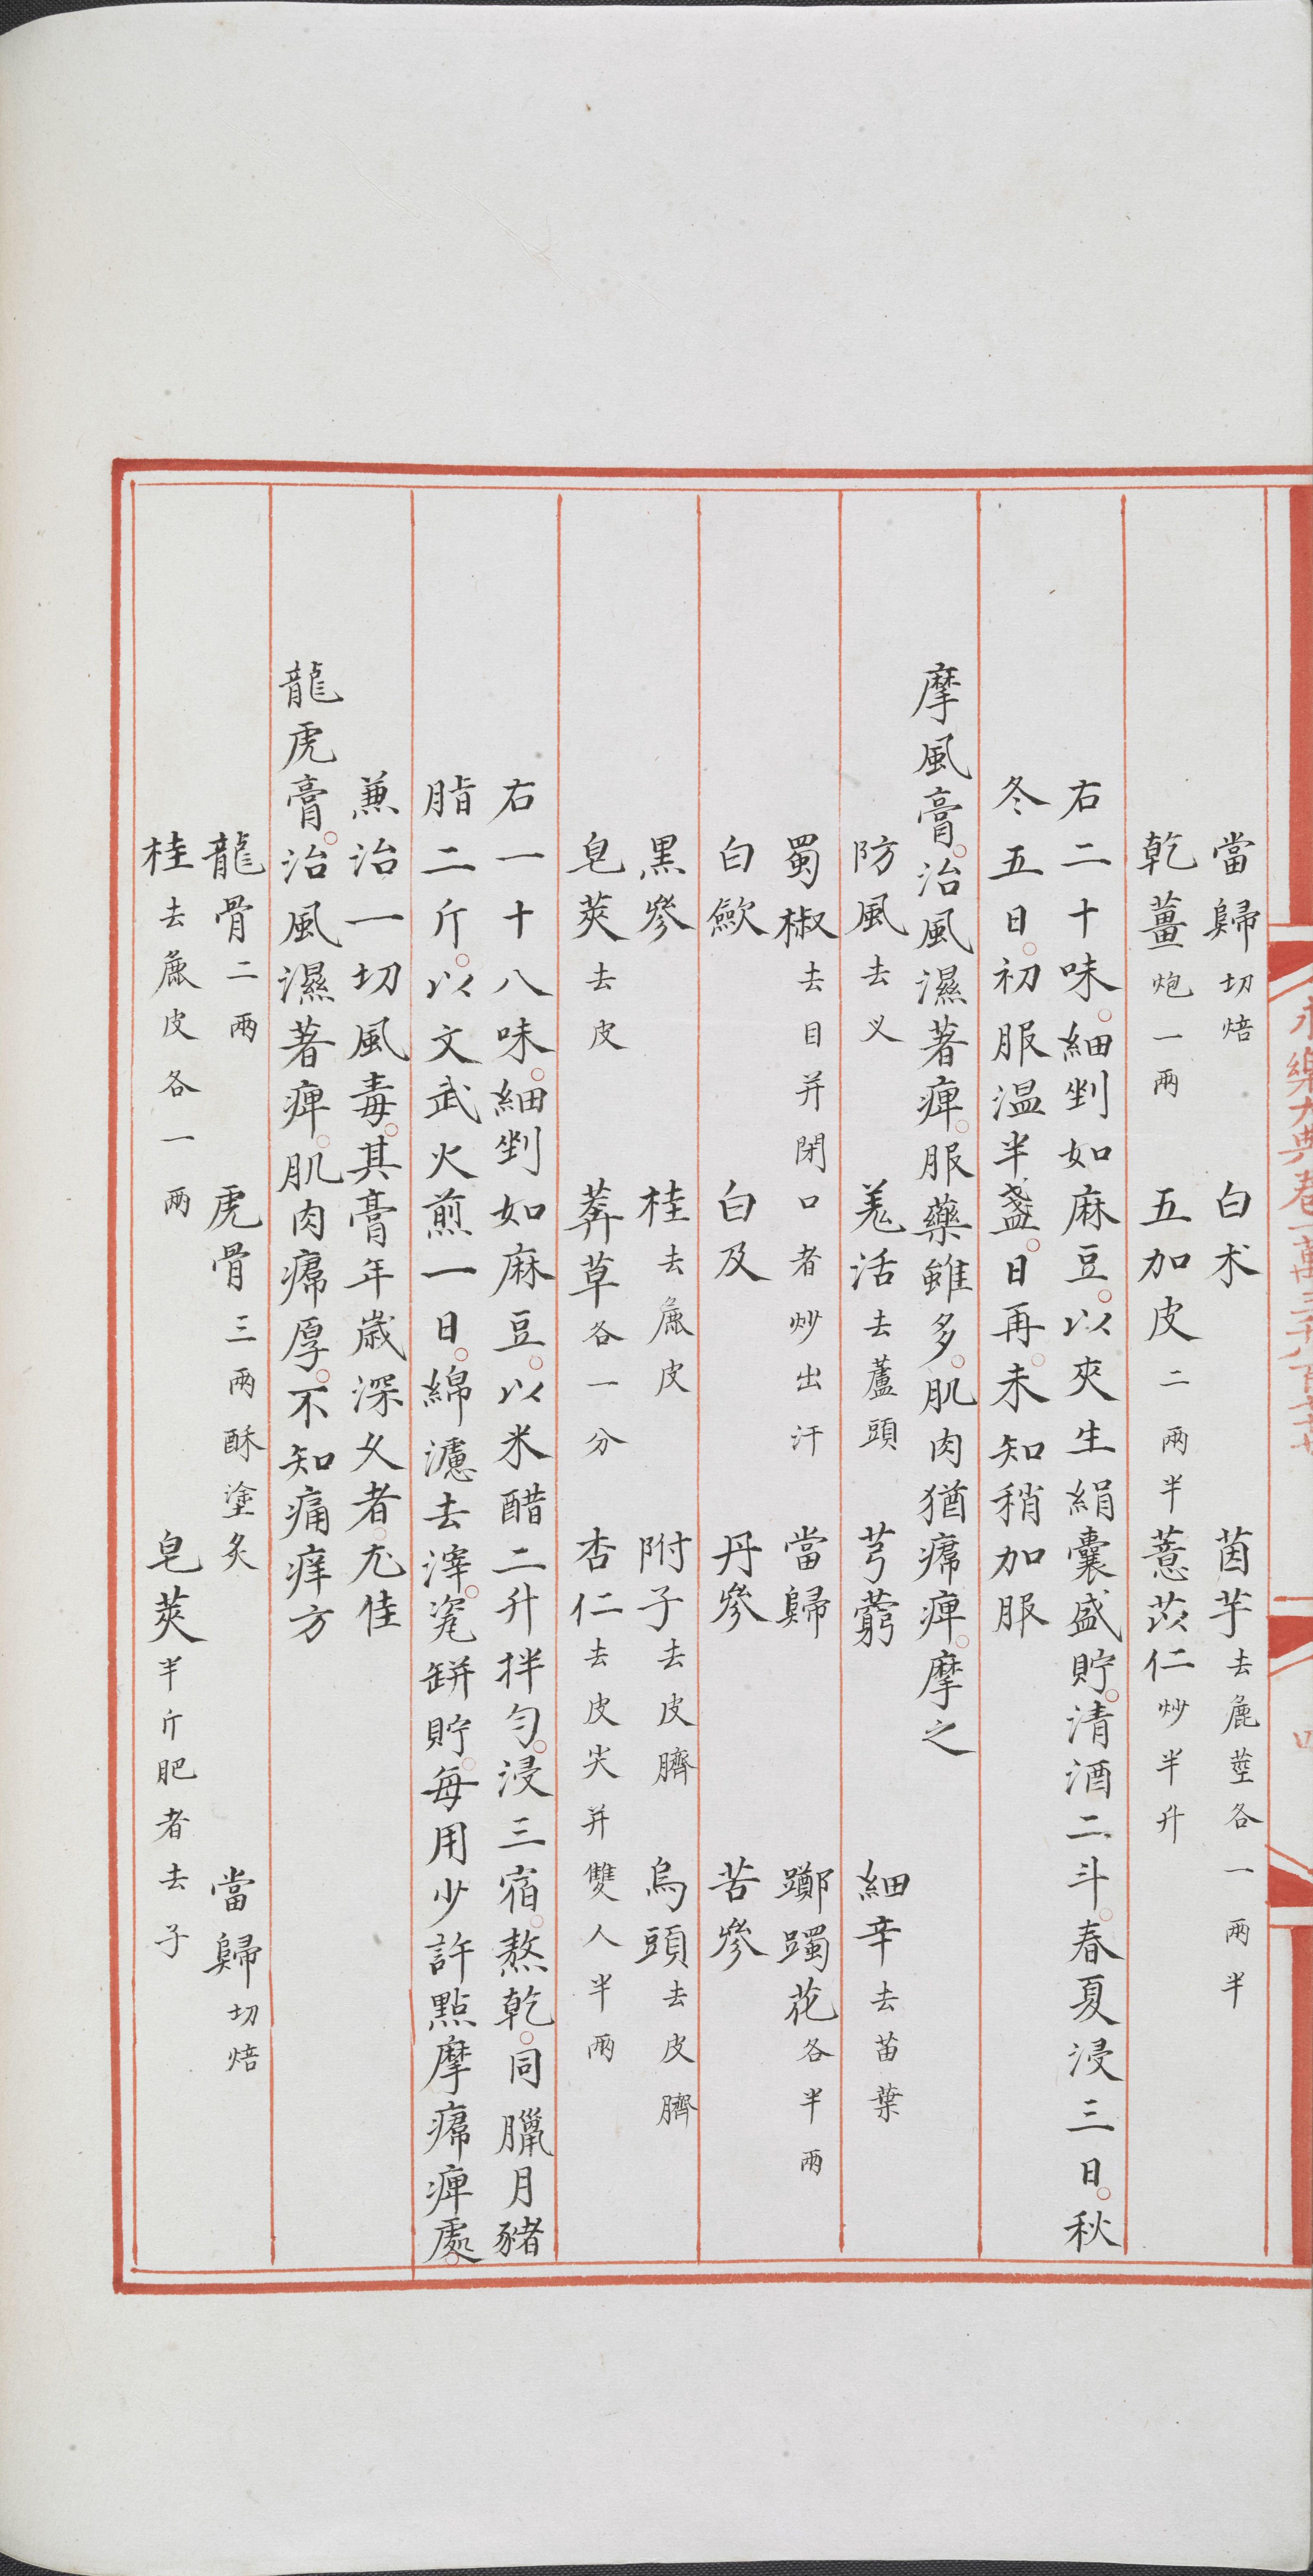 當歸切焙 白朮 茵芋去麄莖各一兩半
乾薑炮一兩 五加皮二兩半 薏苡仁炒半升
右二十味。細剉如麻豆。以夾生絹囊盛貯。清酒二斗。春夏浸三日。秋
冬五日。初服温半盞。日再。未知稍加服
摩風膏。治風濕著痺。服藥雖多。肌肉猶㿏痺。摩之
防風去义 羗活去蘆頭 芎藭 細辛去苗葉
蜀椒去目并閉口者炒出汗 當歸 躑躅花各半兩
白歛 白及 丹參 苦參
黑參 桂去麄皮 附子去皮臍 烏頭去皮臍
皂莢去皮 莽草各一分 杏仁去皮尖并雙人半兩
右一十八味。細剉如麻豆。以米醋二升拌勻。浸三宿。熬乾。同臘月豬
脂二斤。以文武火煎一日。綿濾去滓。瓷缾貯。每用少許點摩㿏痺處。
兼治一切風毒。其膏年歲深久者。尤佳
龍虎膏。治風濕著痺。肌肉㿏厚。不知痛痒方
龍骨二兩 虎骨三兩酥塗炙 當歸切焙
桂去麄皮各一兩 皂莢半斤肥者去子
永樂大典卷一萬三千八百七十九